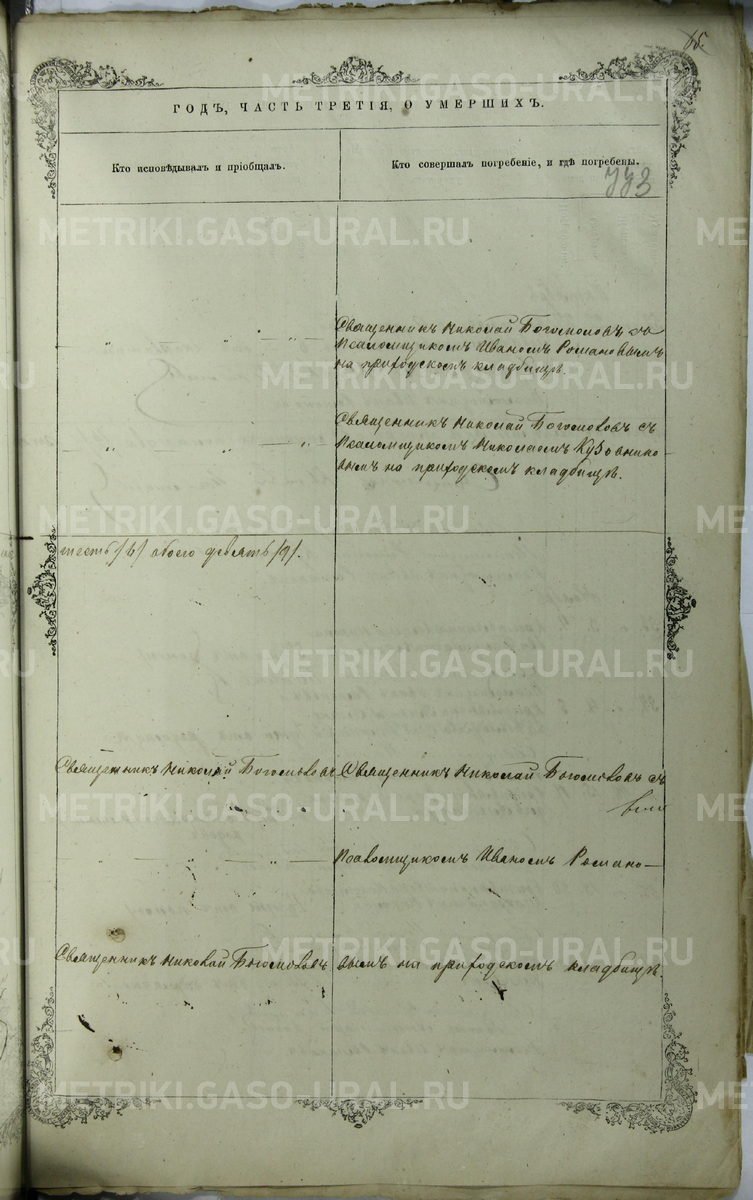 15.
ГОДЪ, ЧАСТЬ ТРЕТІЯ, О УМЕРШИХЪ.
Кто исповѣдывалъ и пріобщалъ.
Кто совершалъ погребеніе, и гдѣ погребены.
METRIKI.GASO-URAL.RU
Священникъ Николай Богословъ съ
Псаломщикомъ Иваномъ Романовымъ
на приходскомъ кладбищѣ.
Священникъ Николай Богословъ съ
Псаломщикомъ Николаемъ Кузовнико
вымъ на приходскомъ кладбищѣ.
шесть /6/ обоего девять /9/.
Священникъ Николай Богословъ
Священникъ Николай Богословъ съ
Псаломщикомъ Иваномъ Романо—
Священникъ Николай Богословъ
вымъ на приходскомъ кладбищѣ.